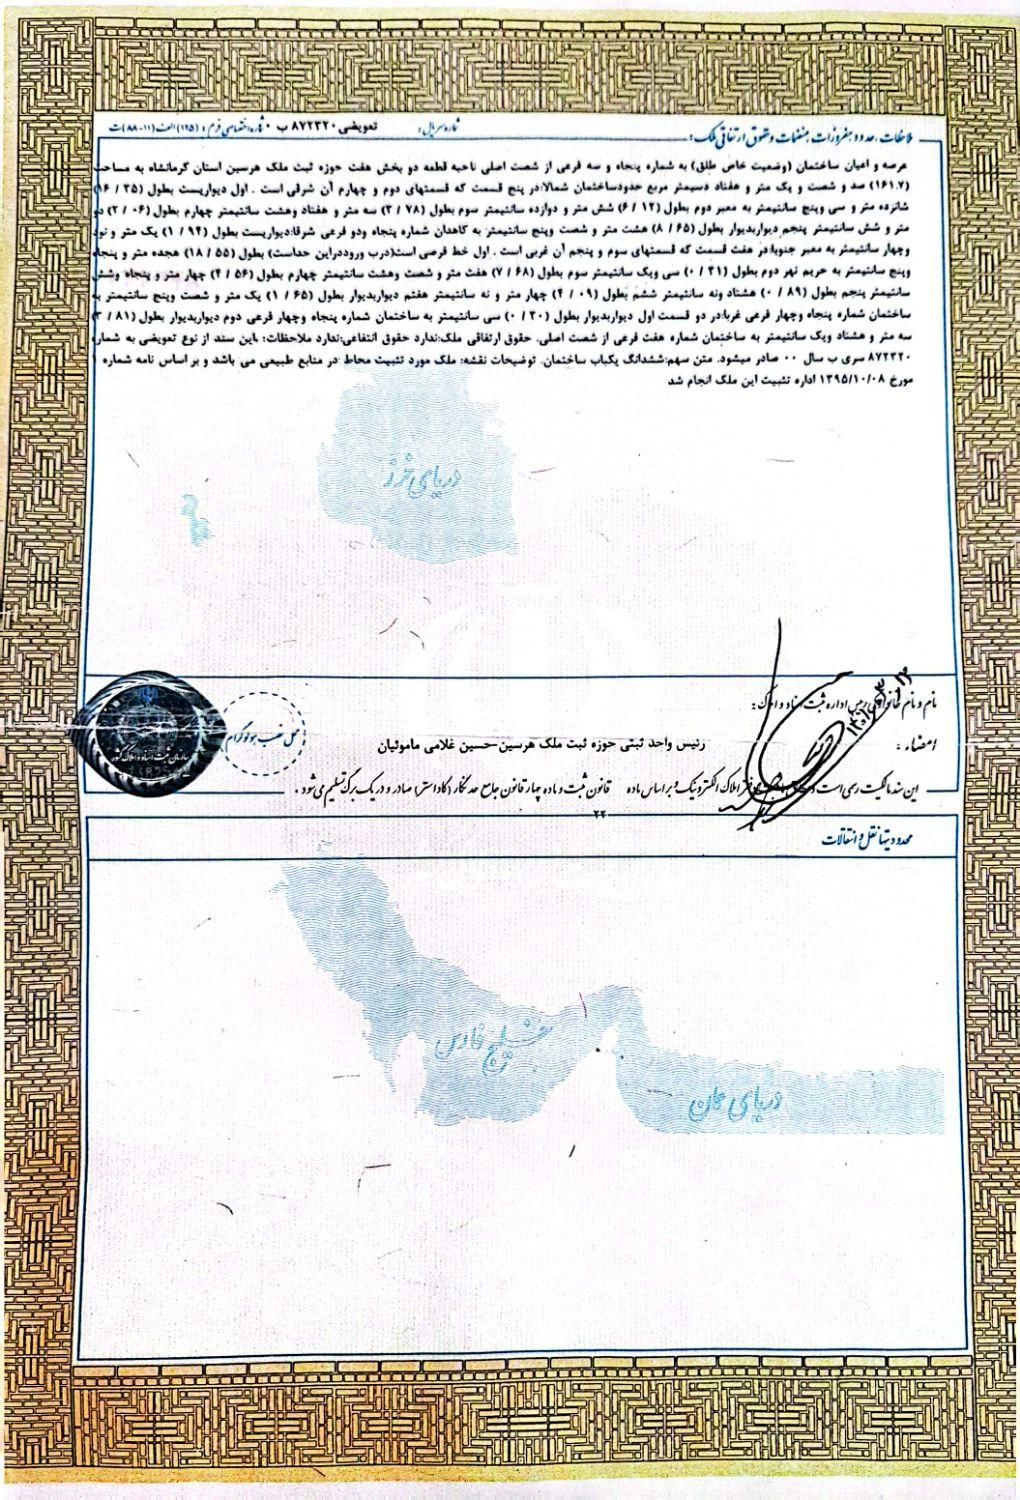 ملاحظات، حدود، مفروزات، منضمات و حقوق ارتفاقی ملک: شماره سریال: تعویضی ۸۷۲۳۲۰ ب ۰ شماره اختصاصی فرم: (۱۲۵) الف (۱۱-۸۸) ت
عرصه و اعیان ساختمان (وضعیت خاص طلق) به شماره پنجاه و سه فرعی از شصت اصلی ناحیه قطعه دو بخش هفت حوزه ثبت ملک هرسین استان کرمانشاه به مساحت
(۱۶۱.۷) صد و شصت و یک متر و هفتاد دسیمتر مربع حدودساختمان شمالا:در پنج قسمت که قسمتهای دوم و چهارم آن شرقی است . اول دیواریست بطول (۳۵ / ۱۶)
شانزده متر و سی وپنج سانتیمتر به معبر دوم بطول (۱۲ / ۶) شش متر و دوازده سانتیمتر سوم بطول (۷۸ / ۳) سه متر و هفتاد وهشت سانتیمتر چهارم بطول (۰۶ / ۲) دو
متر و شش سانتیمتر پنجم دیواربدیوار بطول (۶۵ / ۸) هشت متر و شصت وپنج سانتیمتر به کاهدان شماره پنجاه ودو فرعی شرقا:دیواریست بطول (۹۴ / ۱) یک متر و نود
وچهار سانتیمتر به معبر جنوبا:در هفت قسمت که قسمتهای سوم و پنجم آن غربی است . اول خط فرضی است(درب وروددراین حداست) بطول (۵۵ / ۱۸) هجده متر و پنجاه
وپنج سانتیمتر به حریم نهر دوم بطول (۳۱ / ۰) سی ویک سانتیمتر سوم بطول (۶۸ / ۷) هفت متر و شصت وهشت سانتیمتر چهارم بطول (۵۶ / ۴) چهار متر و پنجاه وشش
سانتیمتر پنجم بطول (۸۹ / ۰) هشتاد ونه سانتیمتر ششم بطول (۰۹ / ۴) چهار متر و نه سانتیمتر هفتم دیواربدیوار بطول (۶۵ / ۱) یک متر و شصت وپنج سانتیمتر به
ساختمان شماره پنجاه وچهار فرعی غربا:در دو قسمت اول دیواربدیوار بطول (۳۰ / ۰) سی سانتیمتر به ساختمان شماره پنجاه وچهار فرعی دوم دیواربدیوار بطول (۸۱ / ۳)
سه متر و هشتاد ویک سانتیمتر به ساختمان شماره هفت فرعی از شصت اصلی. حقوق ارتفاقی ملک:ندارد حقوق انتفاعی:ندارد ملاحظات: این سند از نوع تعویضی به شماره
۸۷۲۳۲۰ سری ب سال ۰۰ صادر میشود. متن سهم:ششدانگ یکباب ساختمان. توضیحات نقشه: ملک مورد تثبیت محاط در منابع طبیعی می باشد و بر اساس نامه شماره ۱
مورخ ۱۳۹۵/۱۰/۰۸ اداره تثبیت این ملک انجام شد
دریای خزر
نام و نام خانوادگی رئیس اداره ثبت اسناد و املاک:
محل نصب هولوگرام
سازمان ثبت اسناد و املاک کشور
امضاء:
رئیس واحد ثبتی حوزه ثبت ملک هرسین-حسین غلامی ماموئیان
این سند مالکیت رسمی است و دفتر املاک الکترونیک و بر اساس ماده ۲۲ قانون ثبت و ماده چهار قانون جامع حدنگار (کاداستر) صادر و در یک برگ تسلیم می شود.
محدودیتها نقل و انتقالات
خلیج فارس
دریای عمان